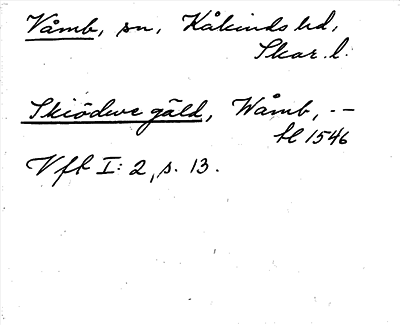 Våmb, sn, Kåkinds hd,
Skar. l.
Skiödwe gäld, Wåmb, --
hl 1546
Vfk I: 2, s. 13.